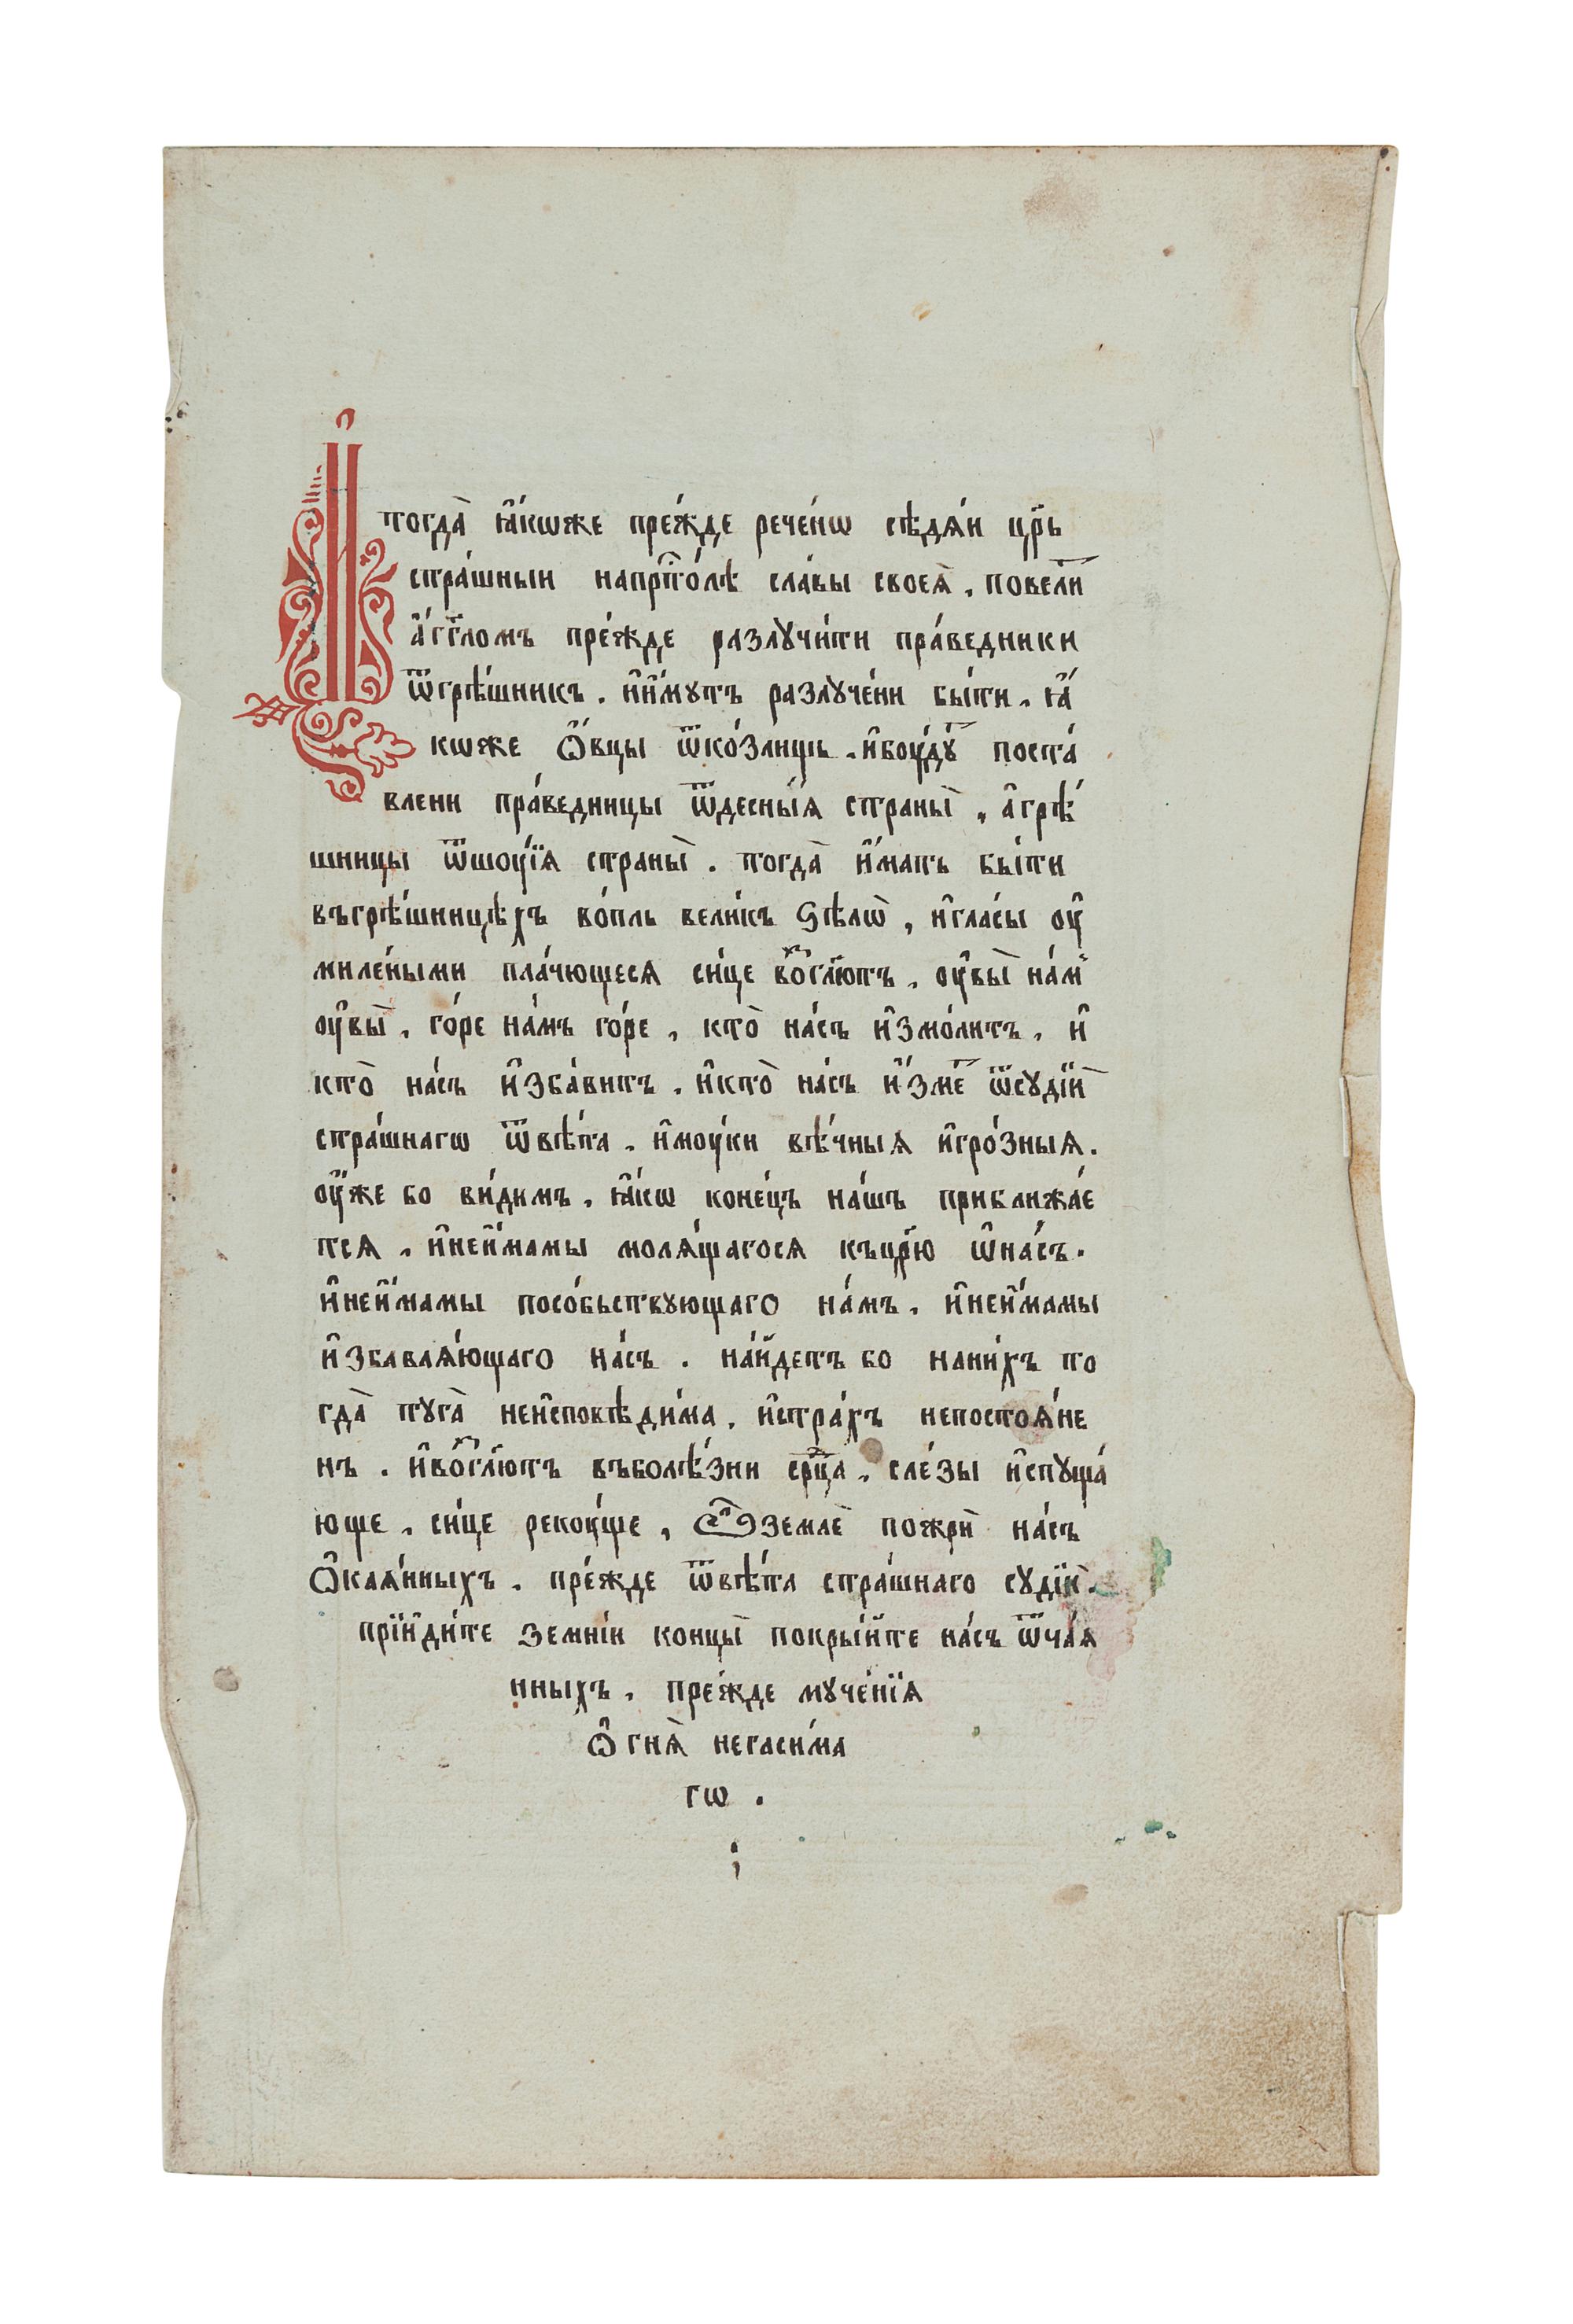 І҆ тогда̀ ꙗ҆́кѡже пре́жде рече́нѡ сѣдѧ́и цр҃ь
стра́шныи напрⷭ҇то́лѣ сла́вы своеѧ̀. повели́тъ
а҆́гг҃ломъ пре́жде разлꙋчи́ти пра́ведники
ѿгрѣ́шникъ. и҆и҆́мꙋтъ разлꙋче́ни бы́ти. ꙗ҆́
кѡже ѻ҆́вцы ѿко́злищь. и҆боу́дꙋⷮ поста́
влени пра́ведницы ѿдесны́ѧ страны̀, а҆грѣ́
шницы ѿшоу́їѧ страны̀. тогда̀ и҆́мать бы́ти
въгрѣ́шницѣхъ во́пль вели́къ ѕѣлѡ̀, и҆гла́сы оу҆
миле́ными пла́чющесѧ си́це воⷥгл҃ютъ. оу҆вы̀ на́мъ
оу҆вы̀. го́ре на́мъ го́ре. кто̀ на́съ и҆змо́литъ. и҆
кто̀ на́съ и҆зба́витъ. и҆кто̀ на́съ и҆́змеⷮ ѿсꙋдїѝ
стра́шнагѡ ѿвѣ́та. и҆моу́ки вѣ́чныѧ и҆гро́зныѧ.
оу҆́же бо ви́димъ. ꙗ҆́кѡ коне́цъ на́шъ приближа́е
тсѧ. и҆неи҆́мамы молѧ́щагосѧ къцр҃ю ѡ҆на́съ.
и҆неи҆́мамы посо́бьствꙋющаго на́мъ. и҆неи҆́мамы
и҆збавлѧ́ющаго на́съ. на́йдетъ бо нани́хъ то
гда̀ тꙋга̀ неи҆сповѣди́ма. и҆стра́хъ непостоѧ́не
нъ. и҆воⷥгл҃ютъ въболѣ́зни срⷣца. сле́зы и҆спꙋща́
юще. си́це рекоу́ще, Ѽземлѐ пожрѝ на́съ
ѻ҆каѧ́нныхъ. пре́жде ѿвѣ́та стра́шнаго сꙋдїѝ.
прїи҆ди́те земні́и концы̀ покры́йте на́съ ѿча́ѧ
нныхъ. пре́жде мꙋче́нїѧ
ѻ҆гнѧ̀ негаси́ма
гѡ.
;